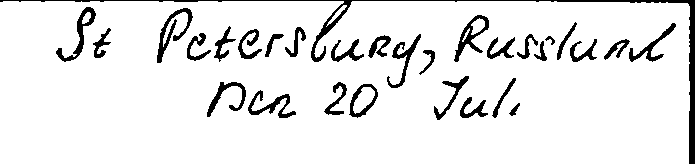 St Petersburg, Russland
Den 20 Juli